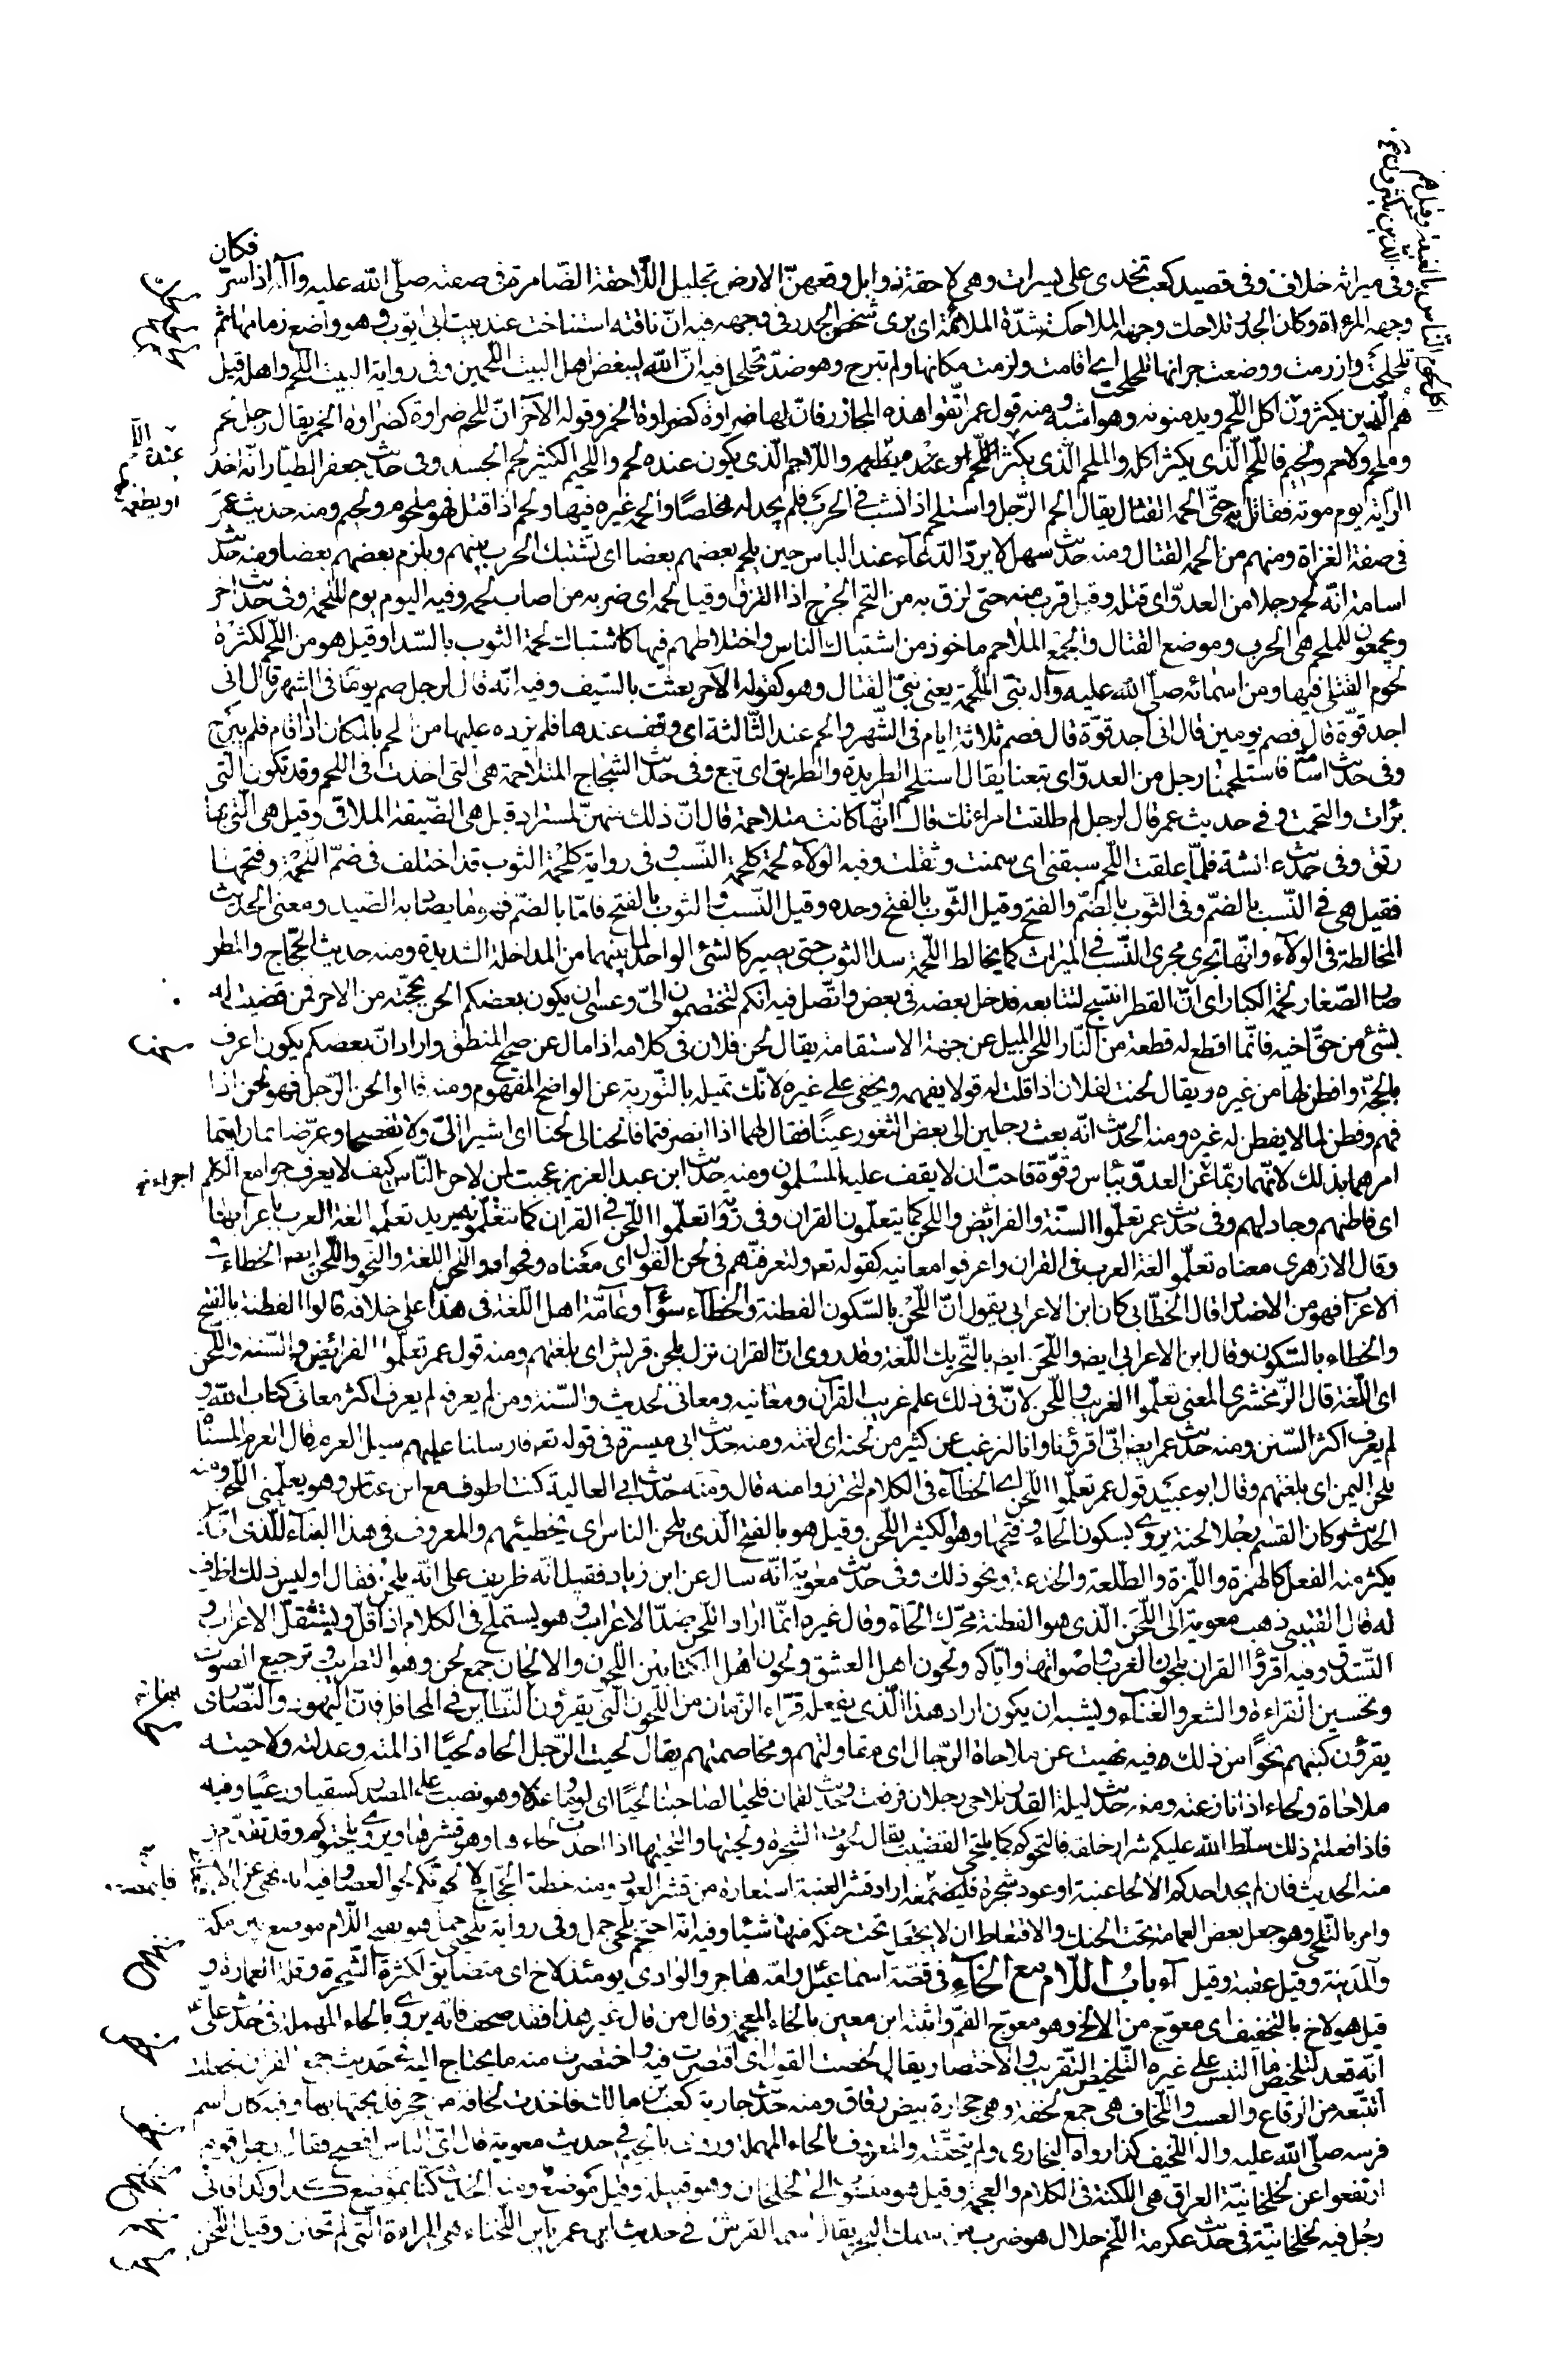 وفى ميراثه خلاف وفى قصيد كعب تخدى على يسرات وهى لاحقة ذوابل وقعهن الارض تحليل اللاحقة الضامرة فى صفته صلى الله عليه وآله اذا سر فكان
وجهه المرءاة وكان الجدر تلاحك وجهه الملاحكة شدة الملائمة اى يرى شخص الجدر فى وجهه فيه ان ناقته استناخت عند بيت ابى ايوب وهو واضع زمامها ثم
تلحلحت وارزمت ووضعت جرانها تلحلحت اى اقامت ولزمت مكانها ولم تبرح وهو ضد تحلحل فيه ان الله ليبغض اهل البيت اللحمين وفى رواية البيت اللحم واهله قيل
هم الذين يكثرون اكل اللحم ويدمنونه وهو اشبه ومنه قول عمر اتقوا هذه المجازر فان لها ضراوة كضراوة الخمر وقوله الآخر ان للحم ضراوة كضراوة الخمر يقال رجل لحم
وملحم ولاحم ولحيم فاللحم الذى يكثر اكله والملحم الذى يكثر اللحم عنده او يطعمه واللاحم الذى يكون عنده لحم واللحيم الكثير لحم الجسد وفى حديث جعفر الطيار انه اخذ
الراية يوم موته فقاتل بها حتى الحمه القتال يقال الحم الرجل واستلحم اذا نشب فى الحرب فلم يجد له مخلصا والحمه غيره فيها ولحم اذا قتل فهو ملحوم ولحيم ومنه حديث عمر
فى صفة الغزاة ومنهم من الحمه القتال ومنه حديث سهل لا يرد الدعاء عند الباس حين يلحم بعضهم بعضا اى تشتبك الحرب بينهم ويلزم بعضهم بعضا ومنه حديث
اسامة انه لحم رجلا من العدو اى قتله وقيل قرب منه حتى لزق به من التحم الجرح اذا التزق وقيل لحمه اى ضربه من اصاب لحمه وفيه اليوم يوم الملحمة وفى حديث آخر
ويجمعون للملحمة هى الحرب وموضع القتال والجمع الملاحم ماخوذ من اشتباك الناس واختلاطهم فيها كاشتباك لحمة الثوب بالسدا وقيل هو من اللحم لكثرة
لحوم القتلى فيها ومن اسمائه صلى الله عليه وآله نبى الملحمة يعنى نبى القتال وهو كقوله الآخر بعثت بالسيف وفيه انه قال لرجل صم يوما فى الشهر قال انى
اجد قوة قال فصم يومين قال انى اجد قوة قال فصم ثلاثة ايام فى الشهر والحم عند الثالثة اى وقف عندها فلم يزده عليها من الحم بالمكان اذا اقام فلم يبرح
وفى حديث اسامة فاستلحمنا رجل من العدو اى تبعنا يقال استلحم الطريدة والطريق اى تبع وفى حديث الشجاج المتلاحمة هى التى اخذت فى اللحم وقد تكون التى
برأت والتحمت وفى حديث عمر قال لرجل لم طلقت امراءتك قال انها كانت متلاحمة قال ان ذلك منهن لمستراد قيل هى الضيقة الملاقى وقيل هى التى بها
رتق وفى حديث عائشة فلما علقت اللحم سبقنى اى سمنت وثقلت وفيه الولاء لحمة كلحمة النسب وفى رواية كلحمة الثوب قد اختلف فى ضم اللحمة وفتحها
فقيل هى فى النسب بالضم وفى الثوب بالضم والفتح وقيل الثوب بالفتح وحده وقيل النسب والثوب بالفتح فاما بالضم فهو ما يصاد به الصيد ومعنى الحديث
المخالطة فى الولاء وانها تجرى مجرى النسب فى الميراث كما يخالط اللحمة سدا الثوب حتى يصير كالشئ الواحد لما بينهما من المداخلة الشديدة ومنه حديث الحجاج والمطر
صار الصغار لحمة الكبار اى ان القطر انتسج لتتابعه فدخل بعضه فى بعض واتصل فيه انكم لتختصمون الى وعسى ان يكون بعضكم الحن بحجته من الآخر فمن قضيت له
بشئ من حق اخيه فانما اقطع له قطعة من النار اللحن الميل عن جهة الاستقامة يقال لحن فلان فى كلامه اذا مال عن صحيح المنطق واراد ان بعضكم يكون اعرف
بالحجة وافطن لها من غيره ويقال لحنت لفلان اذا قلت له قولا يفهمه ويخفى على غيره لانك تميله بالتورية عن الواضح المفهوم ومنه قالوا لحن الرجل فهو لحن اذا
فهم وفطن لما لا يفطن له غيره ومنه الحديث انه بعث رجلين الى بعض الثغور عينا فقال لهما اذا انصرفتما فالحنا لى لحنا اى اشيرا الى ولا تفصحا وعرضا بما رايتما
امرهما بذلك لانهما ربما اخبرا عن العدو بباس وقوة فاحب ان لا يقف عليه المسلمون ومنه حديث ابن عبد العزيز عجبت لمن لاحن الناس كيف لا يعرف جوامع الكلم
اى فاطنهم وجادلهم وفى حديث عمر تعلموا السنة والفرائض واللحن كما يتعلمون القران وفى رواية تعلموا اللحن فى القران كما تتعلمونه يريد تعلموا لغة العرب باعرابها
وقال الازهرى معناه تعلموا لغة العرب فى القران واعرفوا معانيه كقوله تعه ولتعرفنهم فى لحن القول اى معناه وفحواه واللحن اللغة والنحو واللحن ايضا الخطاء فى
الاعراب فهو من الاضداد قال الخطابى كان ابن الاعرابى يقول ان اللحن بالسكون الفطنة والخطاء سواء وعامة اهل اللغة فى هذا على خلافه قالوا الفطنة بالفتح
والخطاء بالسكون وقال ابن الاعرابى ايضا واللحن ايضا بالتحريك اللغة وقد روى ان القران نزل بلحن قريش اى بلغتهم ومنه قول عمر تعلموا الفرائض والسنة واللحن
اى اللغة قال الزمخشرى المعنى تعلموا الغريب واللحن لان فى ذلك علم غريب القرآن ومعانيه ومعانى الحديث والسنة ومن لم يعرفه لم يعرف اكثر معانى كتاب الله و
لم يعرف اكثر السنن ومنه حديث عمر ايضا ابى اقرؤنا وانا لنرغب عن كثير من لحنه اى لغته ومنه حديث ابى ميسرة فى قوله تعه فارسلنا عليهم سيل العرم قال العرم المسناة
بلحن اليمن اى بلغتهم وقال ابو عبيد قول عمر تعلموا اللحن اى الخطاء فى الكلام لتحترزوا منه قال ومنه حديث ابى العالية كنت اطوف مع ابن عباس وهو يعلمنى اللحن ومنه
الحديث وكان القسم رجلا لحنة يروى بسكون الحاء وفتحها وهو الكثير اللحن وقيل هو بالفتح الذى يلحن الناس اى يخطئهم والمعروف فى هذا البناء للذى
يكثر منه الفعل كالهمزة واللمزة والطلعة والخدعة ونحو ذلك وفى حديث معوية انه سال عن ابن زياد فقيل انه ظريف على انه يلحن فقال اوليس ذلك اظرف
له قال القتيبى ذهب معوية الى اللحن الذى هو الفطنة محرك الحاء وقال غيره انما اراد اللحن ضد الاعراب وهو يستملح فى الكلام اذا قل ويستثقل الاعراب و
التشدق وفيه اقرؤا القران بلحون العرب واصواتها واياكم ولحون اهل العشق ولحون اهل الكتابين اللحون والالحان جمع لحن وهو التطريب وترجيع الصوت
وتحسين القراءة والشعر والغناء ويشبه ان يكون اراد هذا الذى يفعله قراء الزمان من اللحون التى يقرؤن النظاير فى المحافل فان اليهود والنصارى
يقرؤن كتبهم نحوا من ذلك فيه نهيت عن ملاحاة الرجال اى مقاولتهم ومخاصمتهم يقال لحيت الرجل الحاه لحيا اذا لمته وعذلته ولاحيته
ملاحاة ولحاء اذا نازعته ومنه حديث ليلة القدر تلاحى رجلان فرفعت وحديث لقمان فلحيا لصاحبنا لحيا اى لوما وعذلا وهو نصب على المصدر كسقيا ورعيا وفيه
فاذا فعلتم ذلك سلط الله عليكم شرار خلقه فالتحوكم كما يلتحى القضيب يقال لحوت الشجرة ولحيتها والتحيتها اذا اخذت لحاءها وهو قشرها ويروى يلحتوكم وقد تقدم
منه الحديث فان لم يجد احدكم الا لحا عنبة او عود شجرة فليمضغه اراد قشر العنبة استعارة من قشر العود ومنه خطبة الحجاج لالحونكم لحو العصا وفيه انه نهى عن الاقتعاط
وامر بالتلحى وهو جعل بعض العمامة تحت الحنك والاقتعاط ان لا يجعل تحت حنكه منها شيئا وفيه انه احتجم بلحى جمل وفى رواية بلحيى جمل هو بفتح اللام موضع بين مكة
والمدينة وقيل عقبة وقيل ماء باب اللام مع الخاء فى قصة اسماعيل وامه هاجر والوادى يومئذ لاخ اى متضايق لكثرة الشجرة وقلة العمارة و
قيل هو لاخ بالتخفيف اى معوج من الالخى وهو معوج الفم واثبته ابن معين بالخاء المعجمة وقال من قال غير هذا فقد صحف فانه يروى بالحاء المهملة فى حديث على
انه قعد لتلخيص ما التبس على غيره التلخيص التقريب والاختصار يقال لخصت القول اى اقتصرت فيه واختصرت منه ما يحتاج اليه فى حديث جمع القران فجعلت
اتتبعه من الرقاع والعسب واللخاف هى جمع لخفة وهى حجارة بيض رقاق ومنه حديث جارية كعب بن مالك فاخذت لخافة من حجر فذبحتها بها وفيه كان اسم
فرسه صلى الله عليه واله اللخيف كذا رواه البخارى ولم يتحققه والمعروف بالحاء المهملة وروى بالجيم فى حديث معوية قال اى الناس افصح فقال رجل قوم
ارتفعوا عن لخلخانية العراق هى اللكنة فى الكلام والعجمة وقيل هو منسوب الى لخلخان وهو قبيلة وقيل موضع ومنه الحديث كنا بموضع كذا وكذا فاتى
رجل فيه لخلخانية فى حديث عكرمة اللخم حلال هو ضرب من سمك البحر يقال اسمه القرش فى حديث ابن عمر يابن اللخناء هى المراءة التى لم تختن وقيل اللخن